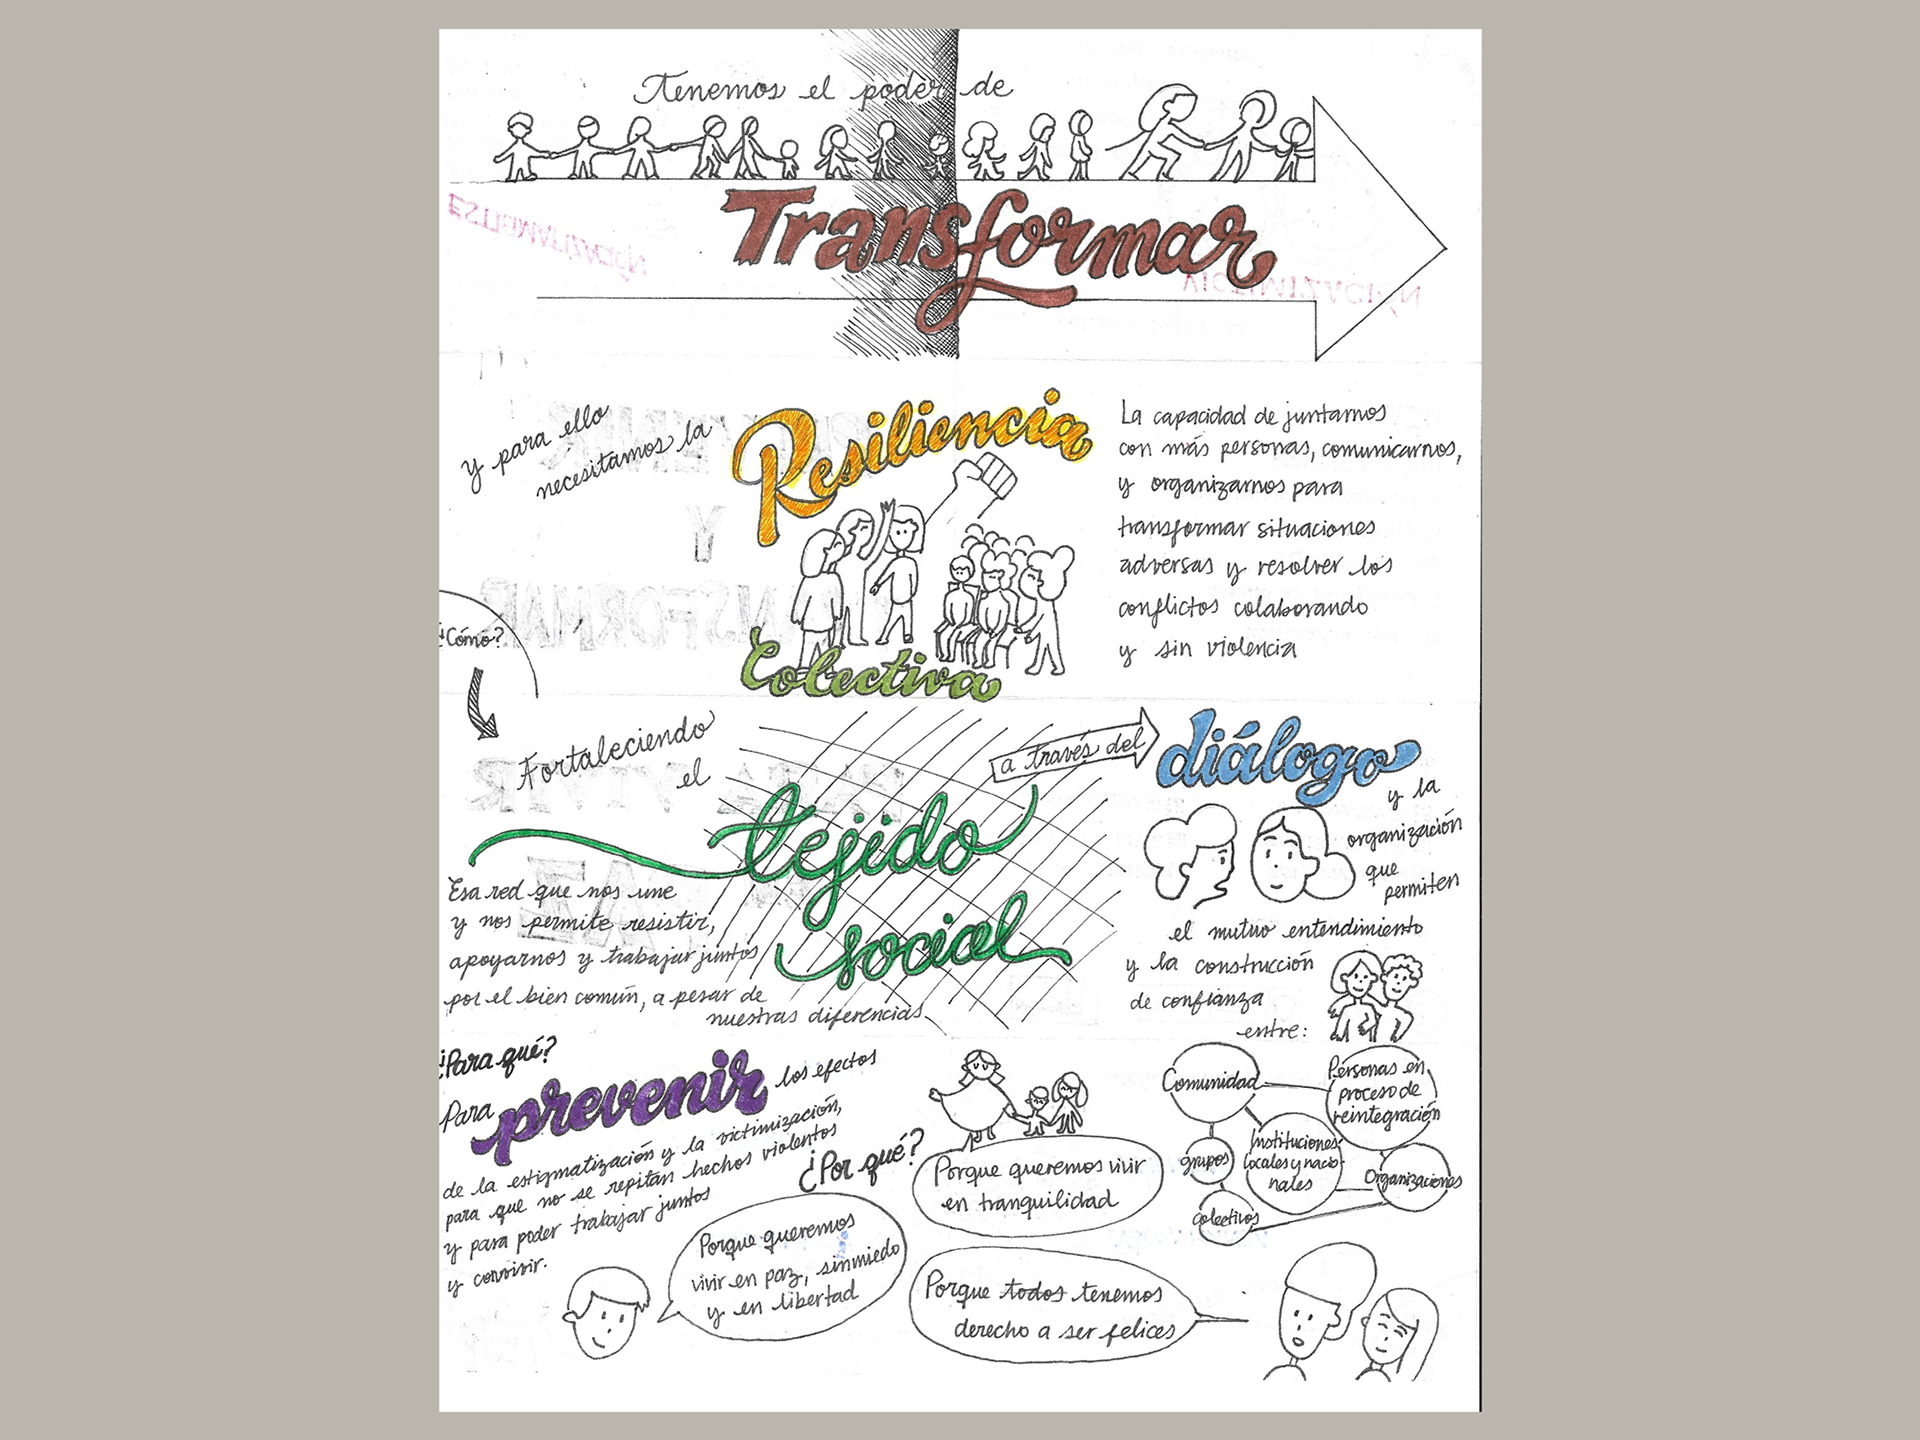 Tenemos el poder de
Transformar
ESTIGMATIZACIÓN
VICTIMIZACIÓN
y para ello
necesitamos la
Resiliencia
Colectiva
La capacidad de juntarnos
con más personas, comunicarnos,
y organizarnos para
transformar situaciones
adversas y resolver los
conflictos colaborando
y sin violencia
¿Cómo?
Fortaleciendo
el
tejido
social
Esa red que nos une
y nos permite resistir,
apoyarnos y trabajar juntos
por el bien común, a pesar de
nuestras diferencias
a través del
diálogo
y la
organización
que
permiten
el mutuo entendimiento
y la construcción
de confianza
entre:
Comunidad
Personas en
proceso de
reintegración
Instituciones
locales y nacio-
nales
grupos
Organizaciones
colectivos
¿Para qué?
Para prevenir los efectos
de la estigmatización y la victimización,
para que no se repitan hechos violentos
y para poder trabajar juntos
y convivir.
¿Por qué?
Porque queremos vivir
en tranquilidad
Porque queremos
vivir en paz, sin miedo
y en libertad
Porque todos tenemos
derecho a ser felices